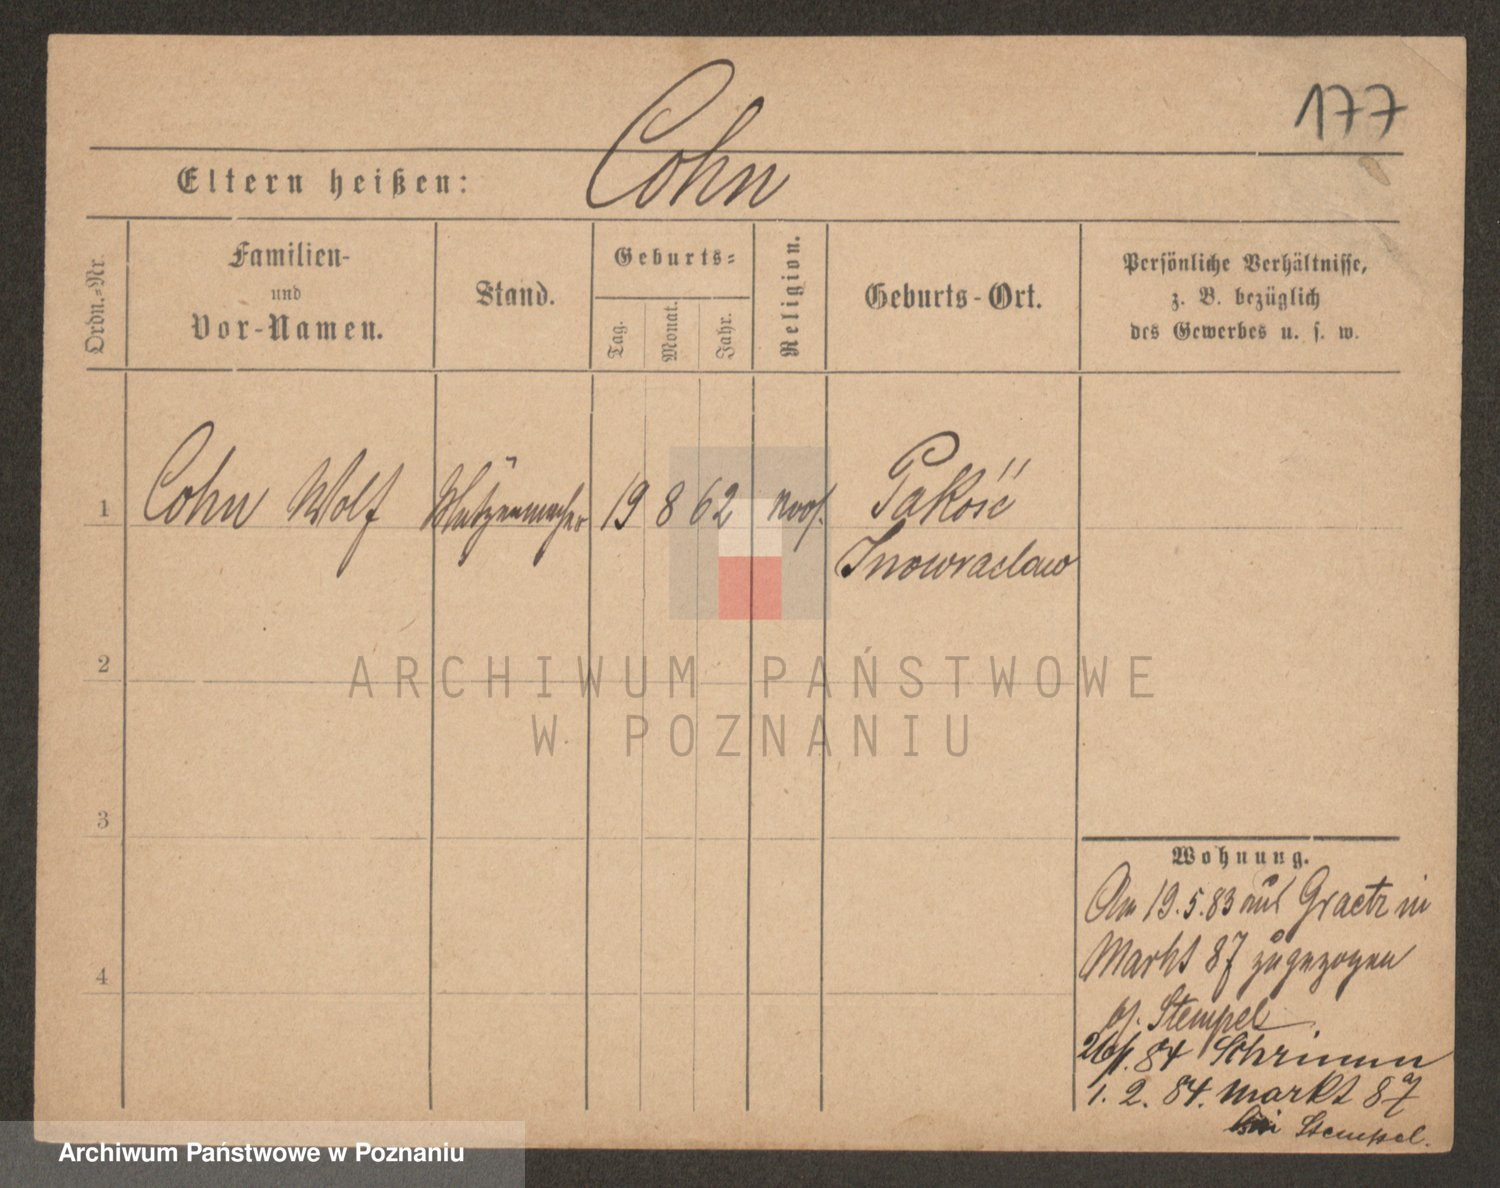 177
Cohn
Eltern heißen:
Ordn.-Nr.
Familien-
und
Vor-Namen.
Stand.
Geburts-
Tag.
Monat.
Jahr.
Religion.
Geburts-Ort.
Persönliche Verhältnisse,
z. B. bezüglich
des Gewerbes u. s. w.
1 Cohn Wolf Mützenmacher 19 8 62 mos. Pakość
Inowraclaw
2
3
4
ARCHIWUM PAŃSTWOWE
W POZNANIU
Wohnung.
Am 19.5.83 aus Graetz in
Markt 87 zugezogen
Stempel
84 Schrimm
1. 2. 84. Markt 87
bei Stempel.
Archiwum Państwowe w Poznaniu